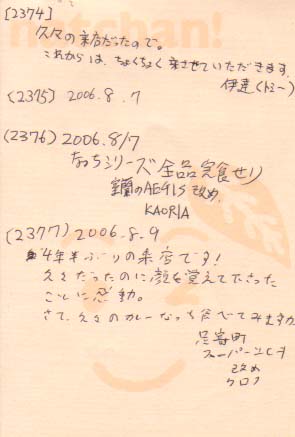 [2374]
久々の来店だったので。
これからは、ちょくちょく来させていただきます。
伊達(トミー)
(2375) 2006.8.7
(2376) 2006.8/7
なっちシリーズ全品完食せり
室蘭のAEGIS 改め
KAORIA
(2377) 2006.8.9
4年半ぶりの来店です!
久々だったのに顔を覚えて下さった
ことに感動。
さて、久々のカレーなっち食べてみますか
足寄町
スーパー
改め
クロノ